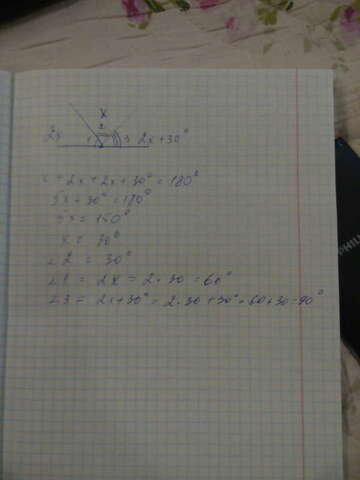 x
2
2x 1 3 2x+30°
x + 2x + 2x + 30° = 180°
5x + 30° = 180°
5x = 150°
x = 30°
∠2 = 30°
∠1 = 2x = 2 · 30 = 60°
∠3 = 2x + 30° = 2 · 30 + 30° = 60 + 30 = 90°
PHILI